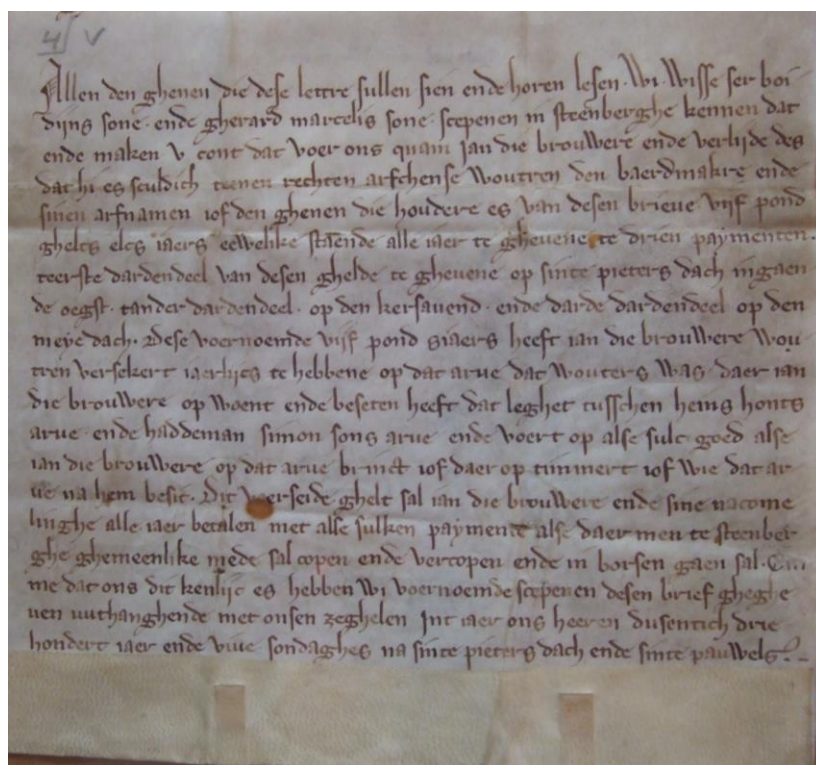 4 V
Allen den ghenen die dese lettre sullen sien ende horen lesen. Wi. Wisse ser boi-
dijns sone. ende gherard marcelis sone. scepenen in steenberghe kennen dat
ende maken v cont dat voer ons quam jan die brouwere ende verlijde des
dat hi es sculdich teenen rechten arfchense woutren den baerdmakre ende
sinen arfnamen iof den ghenen die houdere es van desen brieve vijf pond
ghelts elcs iaers eewelike staende alle iaer te ghevene te drien paymenten.
teerste dardendeel van desen ghelde te ghevene op sinte pieters dach ingaen
de oegst. tander dardendeel. op den kersavend. ende darde dardendeel op den
meye dach. Dese voernoemde vijf pond siaers heeft ian die brouwere wou
tren versekert iaerlijcs te hebbene op dat arve dat wouters was. daer ian
die brouwere op woent ende beseten heeft dat leghet tusschen heins honts
arve. ende haddeman simon sons arve ende voert op alse sulc. goed alse
ian die brouwere op dat arve brinct iof daer op timmert iof wie dat ar-
ve na hem besit. Dit voerseide ghelt sal ian die brouwere ende sine nacome
linghe alle iaer betalen met alse sulken paymente alse daer men te steenber
ghe ghemeenlike mede sal copen ende vercopen ende in borsen gaen sal. Om
me dat ons dit kenlijc es hebben wi voernoemde scepenen desen brief gheghe
ven uuthanghende met onsen zeghelen Int iaer ons heeren dusentich drie
hondert iaer ende vive sondaghes na sinte pieters dach ende sinte pauwels.